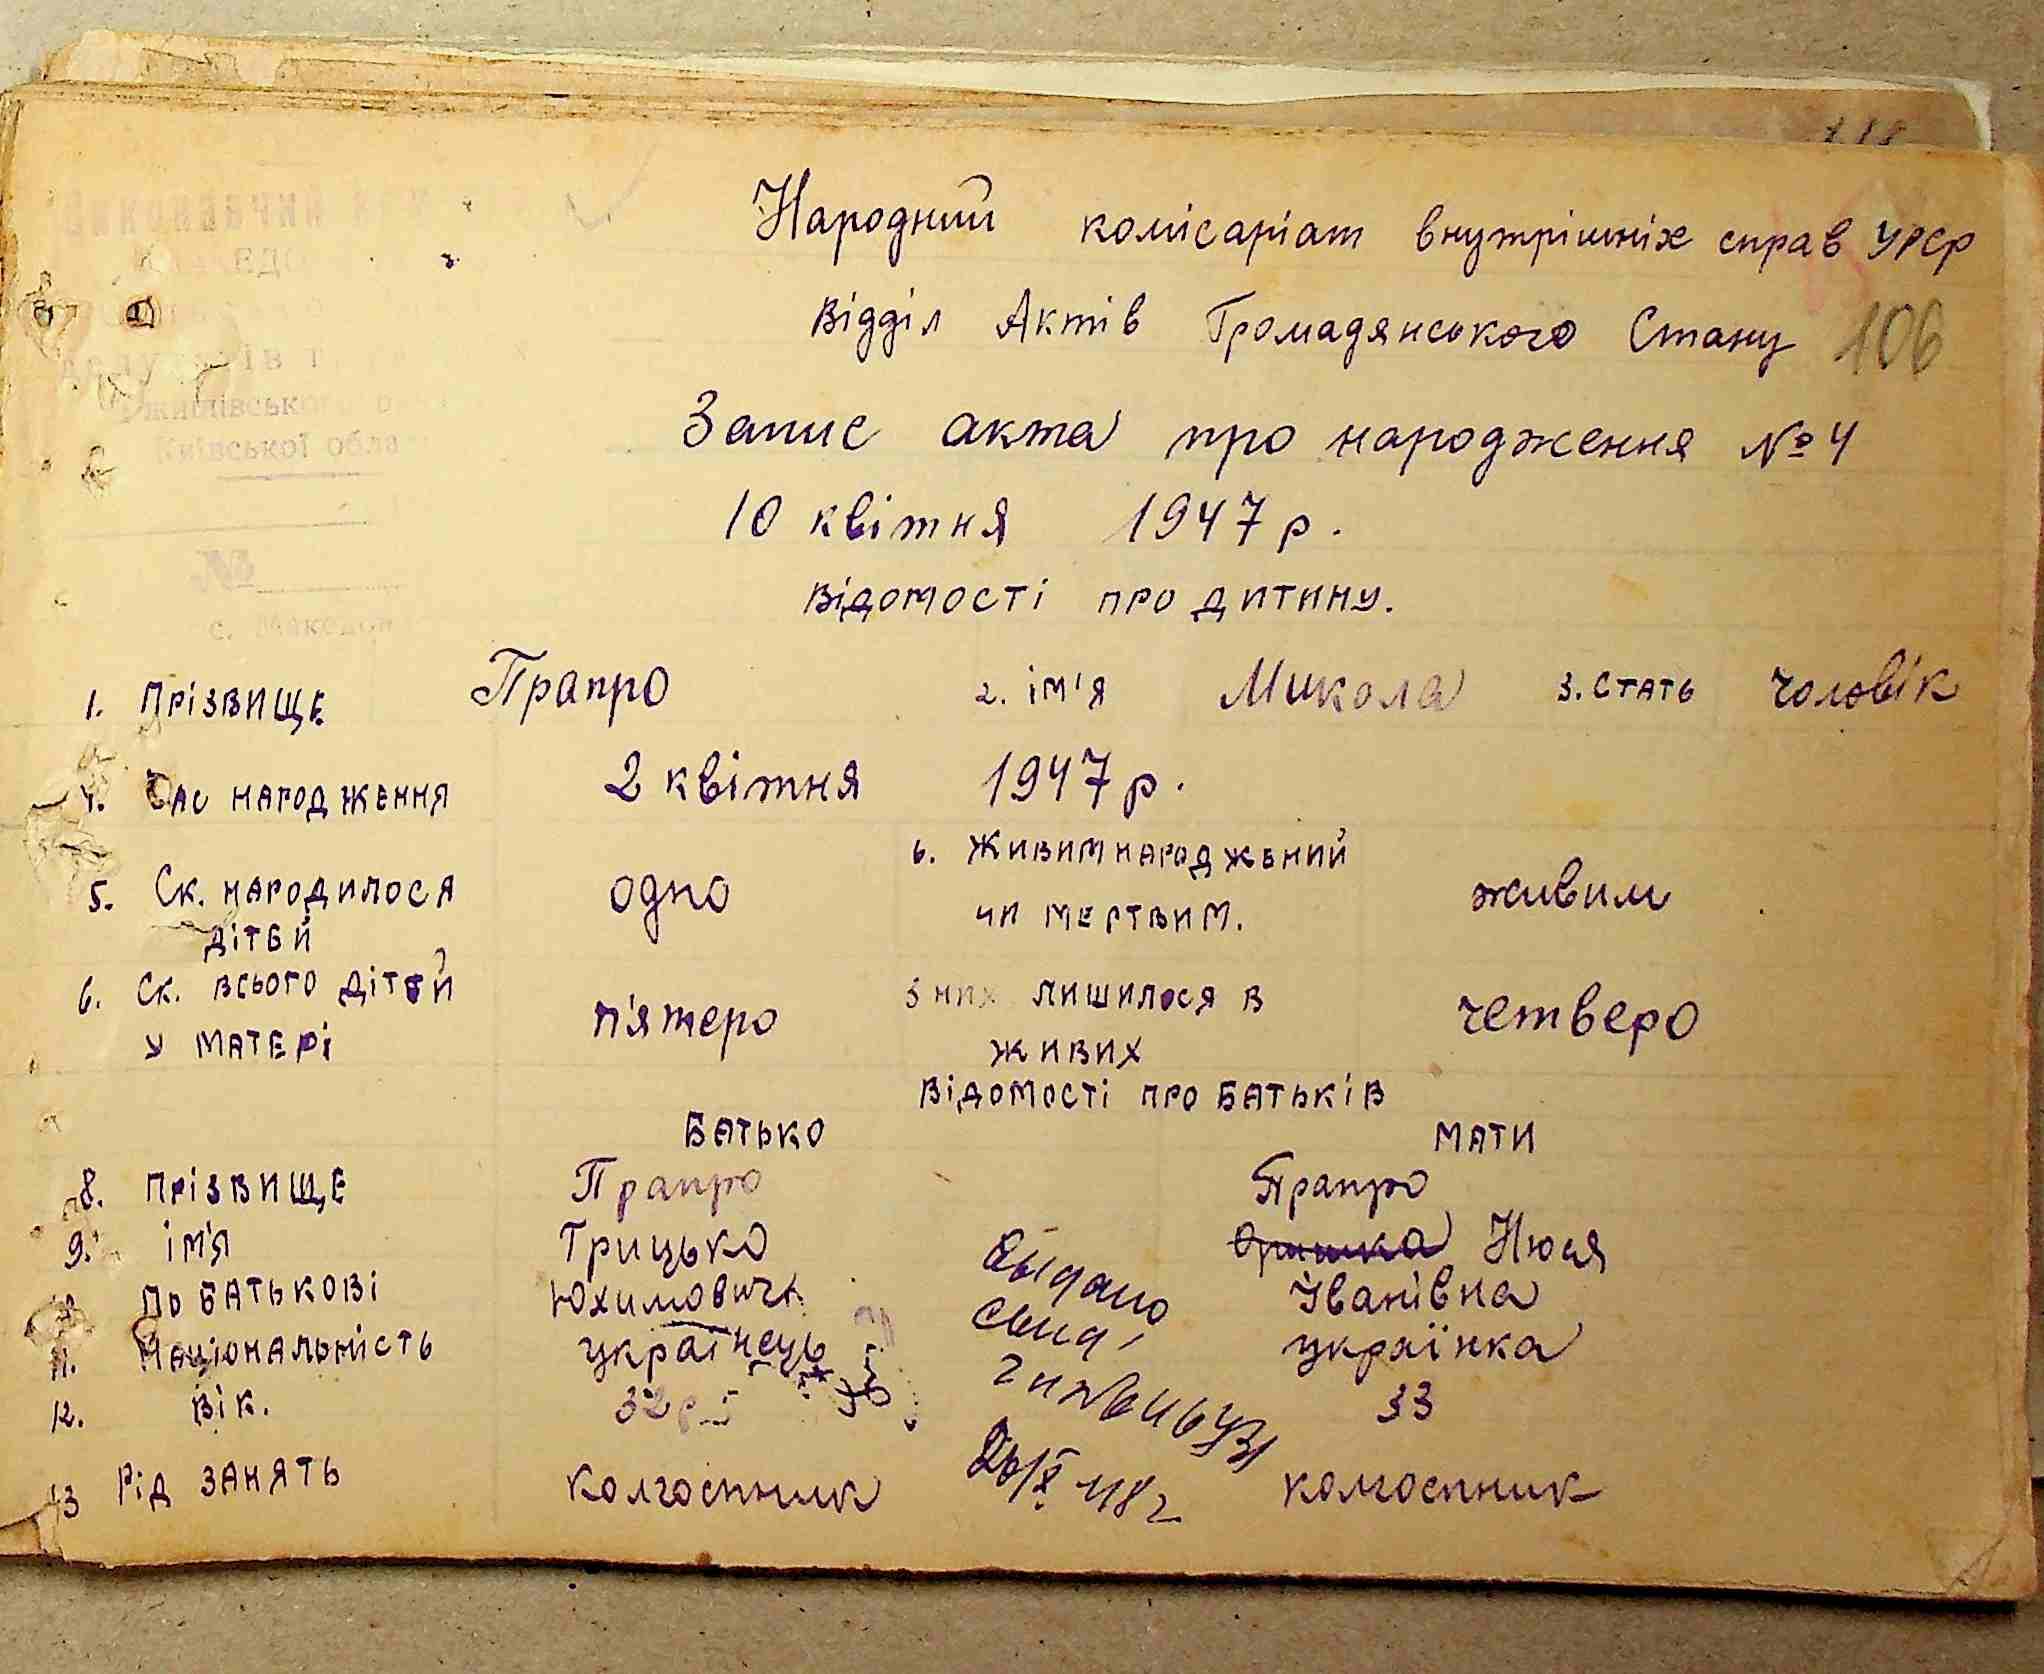 Народний комісаріат внутрішніх справ УРСР
Відділ Актів Громадянського Стану 106
Запис акта про народження № 4
10 квітня 1947 р.
Відомості про дитину.
1. Прізвище Прапро 2. ім'я Микола 3. Стать чоловік
4. Час народження 2 квітня 1947 р.
5. Ск. народилося дітей одно 6. Живим народжений чи мертвим. живим
6. Ск. всього дітей у матері п'ятеро з них лишилося в живих четверо
Відомості про батьків
Батько Мати
8. Прізвище Прапро Прапро
9. ім'я Грицько Оришка Нюся
По батькові Юхимович Іванівна
11. Національність українець українка
12. Вік. 32 р 33
13 Рід занять колгоспник колгоспник
Выдано
свид,
26/X 48 г
Виконавчий
депутатів
Київської обла
№
с. Македон